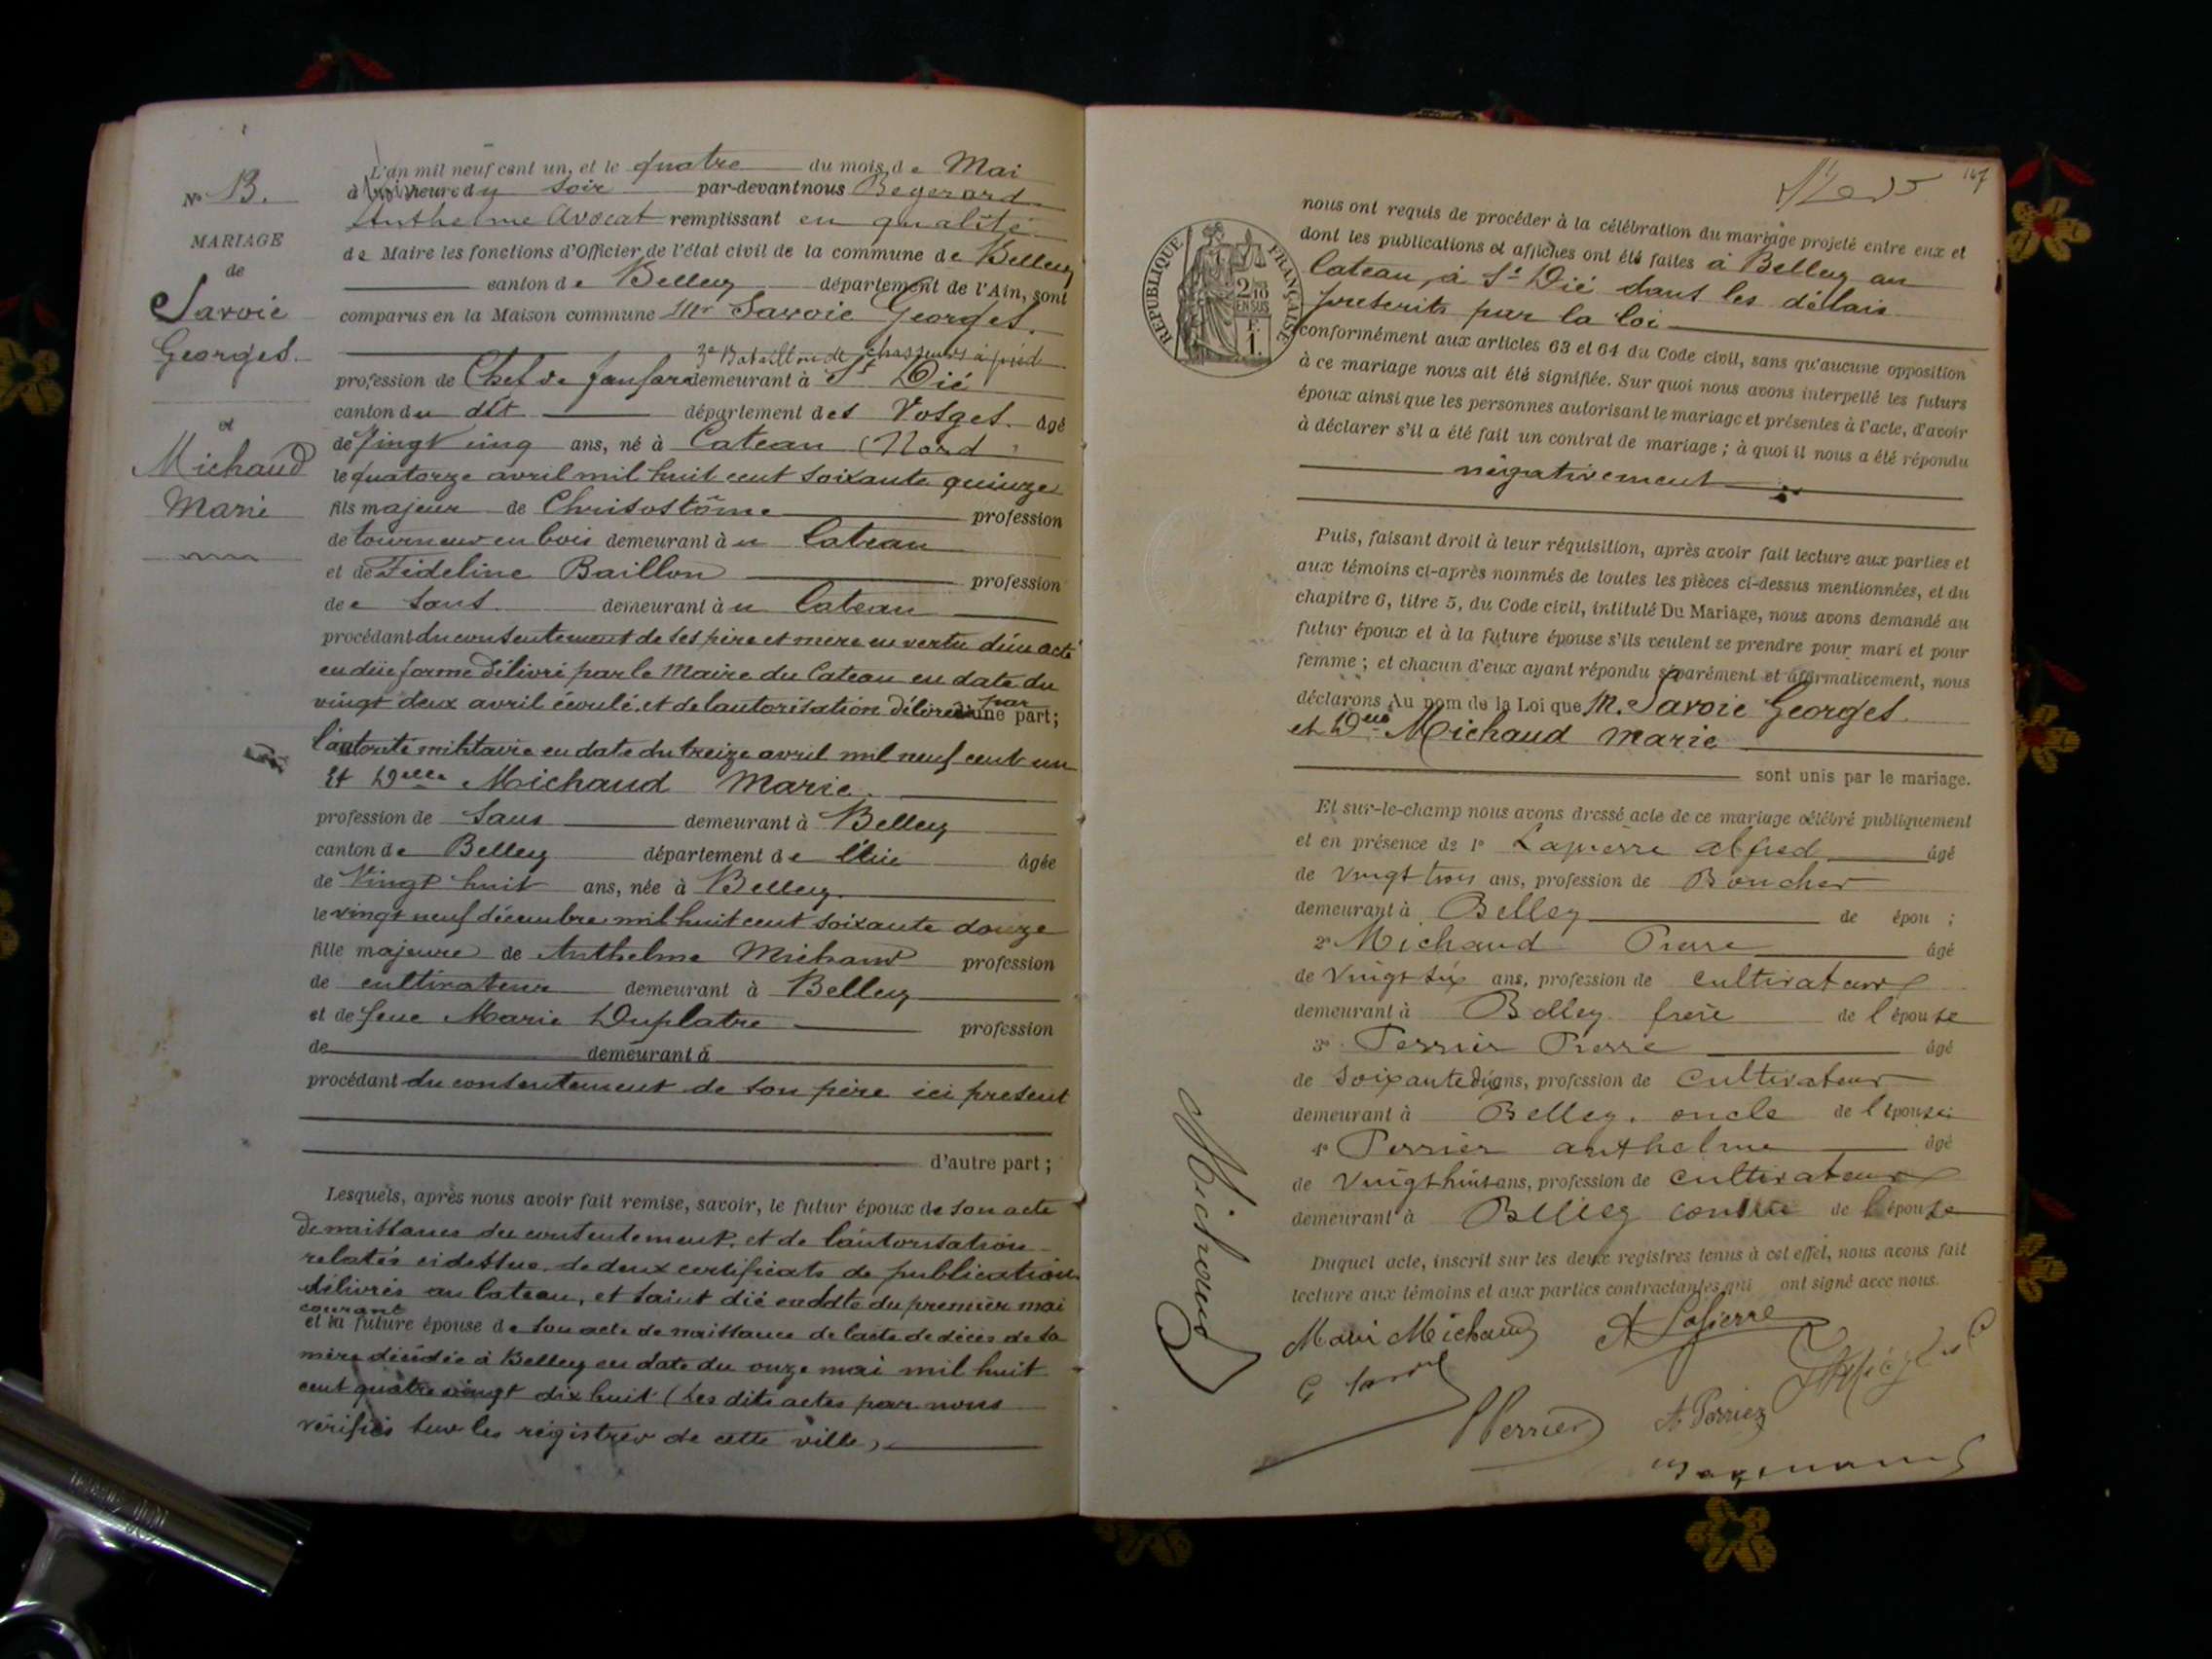 N° 13.
MARIAGE
de
Savoie
Georges.
et
Michaud
Marie
L'an mil neuf cent un, et le quatre du mois de Mai
à trois heures du soir par-devant nous Begerard
Anthelme Avocat remplissant en qualité
de Maire les fonctions d'Officier de l'état civil de la commune de Belley
canton de Belley département de l'Ain, sont
comparus en la Maison commune Mr Savoie Georges.
3e Bataillon de chasseurs à pied
profession de Chef de fanfare demeurant à St Dié
canton du dit département des Vosges. âgé
de Vingt cinq ans, né à Cateau (Nord
le quatorze avril mil huit cent soixante quinze
fils majeur de Chrisostôme profession
de tourneur en bois demeurant à u Cateau
et de Fideline Baillon profession
de e Sans demeurant à u Cateau
procédant du consentement de ses père et mère en vertu d'un acte
en düe forme délivré par le Maire du Cateau en date du
vingt deux avril écoulé, et de l'autorisation délivrée par d'une part;
l'autorité militaire en date du treize avril mil neuf cent un
Et Delle Michaud Marie.
profession de Sans demeurant à Belley
canton de Belley département de l'Ain âgée
de Vingt huit ans, née à Belley
le vingt neuf décembre mil huit cent soixante douze
fille majeure de Anthelme Michaud profession
de cultivateur demeurant à Belley
et de feue Marie Duplatre profession
de demeurant à
procédant du consentement de son père ici présent
d'autre part;
Lesquels, après nous avoir fait remise, savoir, le futur époux de son acte
de naissance du consentement, et de l'autorisation
relatés ci dessus, de deux certificats de publication
délivrés au Cateau, et Saint dié en date du premier mai
courant
et la future épouse de son acte de naissance de l'acte de décès de sa
mère décédée à Belley en date du onze mai mil huit
cent quatre vingt dix huit (Les dits actes par nous
vérifiés sur les régistres de cette ville)
147
RÉPUBLIQUE FRANÇAISE
2/10
EN SUS
F.
1.
nous ont requis de procéder à la célébration du mariage projeté entre eux et
dont les publications et affiches ont été faites à Belley au
Cateau, à St Dié dans les délais
prescrits par la loi
conformément aux articles 63 et 64 du Code civil, sans qu'aucune opposition
à ce mariage nous ait été signifiée. Sur quoi nous avons interpellé les futurs
époux ainsi que les personnes autorisant le mariage et présentes à l'acte, d'avoir
à déclarer s'il a été fait un contrat de mariage; à quoi il nous a été répondu
négativement
Puis, faisant droit à leur réquisition, après avoir fait lecture aux parties et
aux témoins ci-après nommés de toutes les pièces ci-dessus mentionnées, et du
chapitre 6, titre 5, du Code civil, intitulé Du Mariage, nous avons demandé au
futur époux et à la future épouse s'ils veulent se prendre pour mari et pour
femme; et chacun d'eux ayant répondu séparément et affirmativement, nous
déclarons Au nom de la Loi que M. Savoie Georges
et Delle Michaud Marie
sont unis par le mariage.
Et sur-le-champ nous avons dressé acte de ce mariage célébré publiquement
et en présence de 1° Lapierre alfred âgé
de vingt trois ans, profession de Boucher
demeurant à Belley de épou ;
2° Michaud Pierre âgé
de vingt six ans, profession de cultivateur
demeurant à Belley frère de l'épouse
3° Perrier Pierre âgé
de soixante dix ans, profession de cultivateur
demeurant à Belley. oncle de l'épouse
4° Perrier anthelme âgé
de vingt huit ans, profession de cultivateur
demeurant à Belley cousin de l'épouse
Duquel acte, inscrit sur les deux registres tenus à cet effet, nous avons fait
lecture aux témoins et aux parties contractantes qui ont signé avec nous.
Marie Michaud A Lapierre
G Savoie
P Perrier A. Perrier
Michaud